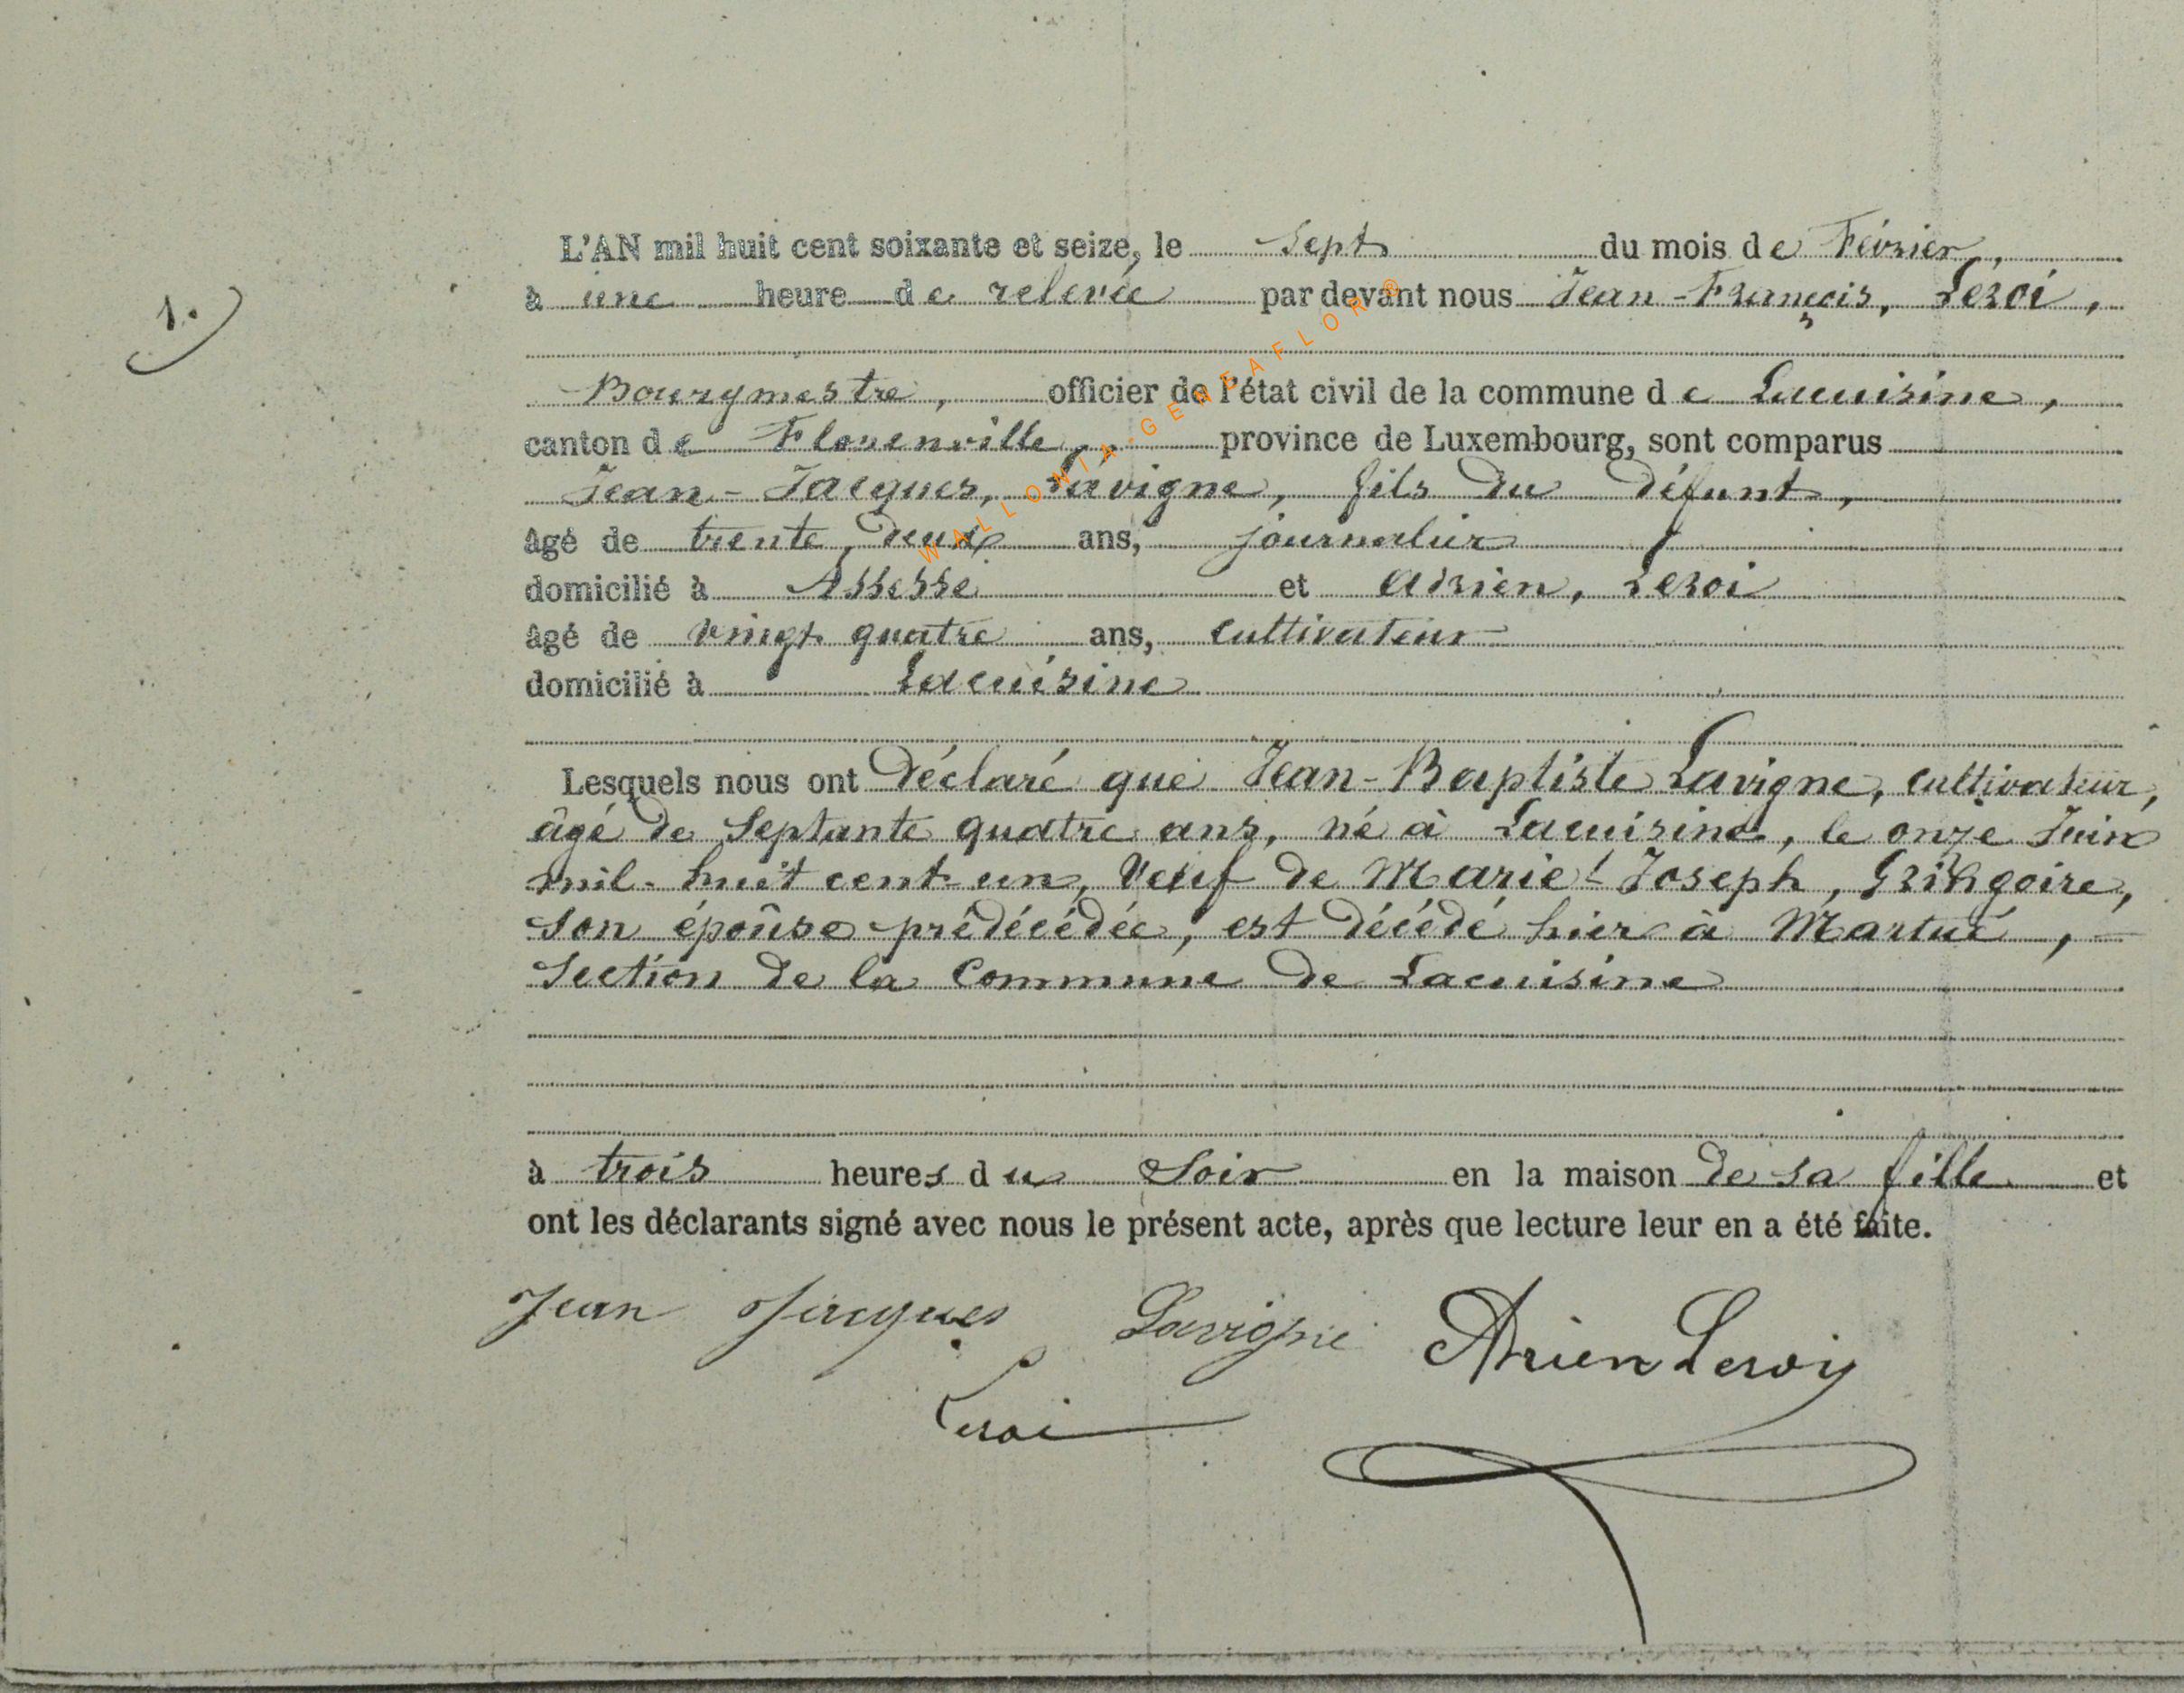 L'AN mil huit cent soixante et seize, le sept du mois de Février,
1.
à une heure de relevée par devant nous Jean-François, Leroi,
Bourgmestre, officier de l'état civil de la commune de Lacuisine,
canton de Florenville, province de Luxembourg, sont comparus
Jean-Jacques, Lavigne, fils du défunt,
âgé de trente deux ans, journalier
domicilié à Assesse et Adrien, Leroi
âgé de vingt quatre ans, cultivateur
domicilié à Lacuisine
Lesquels nous ont déclaré que Jean-Baptiste Lavigne, cultivateur,
âgé de septante quatre ans, né à Lacuisine, le onze Juin
mil-huit cent-un, veuf de Marie-Joseph, Gringoire,
son épouse prédécédée, est décédé hier à Martué,
section de la commune de Lacuisine
à trois heures du soir en la maison de sa fille et
ont les déclarants signé avec nous le présent acte, après que lecture leur en a été faite.
Jean Jacques Lavigne Adrien Leroy
Leroi
WALLONIA-GENEAFLOR®